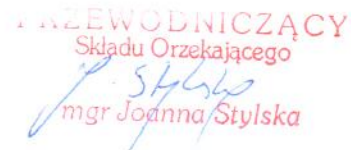 PRZEWODNICZĄCY
Składu Orzekającego
J. Stylska
mgr Joanna Stylska